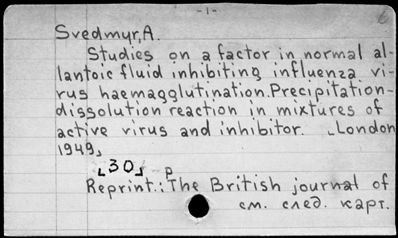 -1-
Svedmyr, A.
Studies on a factor in normal al-
lantoic fluid inhibiting influenza vi-
rus haemagglutination. Precipitation-
dissolution reaction in mixtures of
active virus and inhibitor. [London
1949]
[30] p
Reprint.: The British journal of
см. след. карт.